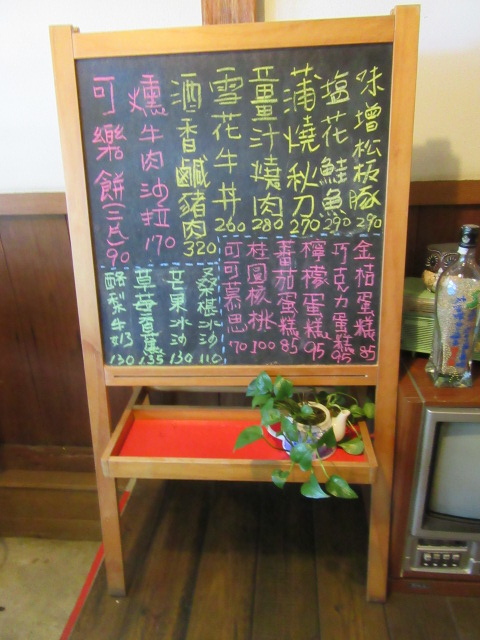 味增松板豚 290
塩花鮭魚 290
蒲燒秋刀 270
薑汁燒肉 280
雪花牛丼 260
酒香鹹豬肉 320
燻牛肉沙拉 170
可樂餅(三片) 90
金桔蛋糕 85
巧克力蛋糕 95
檸檬蛋糕 95
蕃茄蛋糕 85
桂圓核桃 100
可可慕思 70
桑椹冰沙 110
芒果冰沙 130
草莓香蕉 135
酪梨牛奶 130